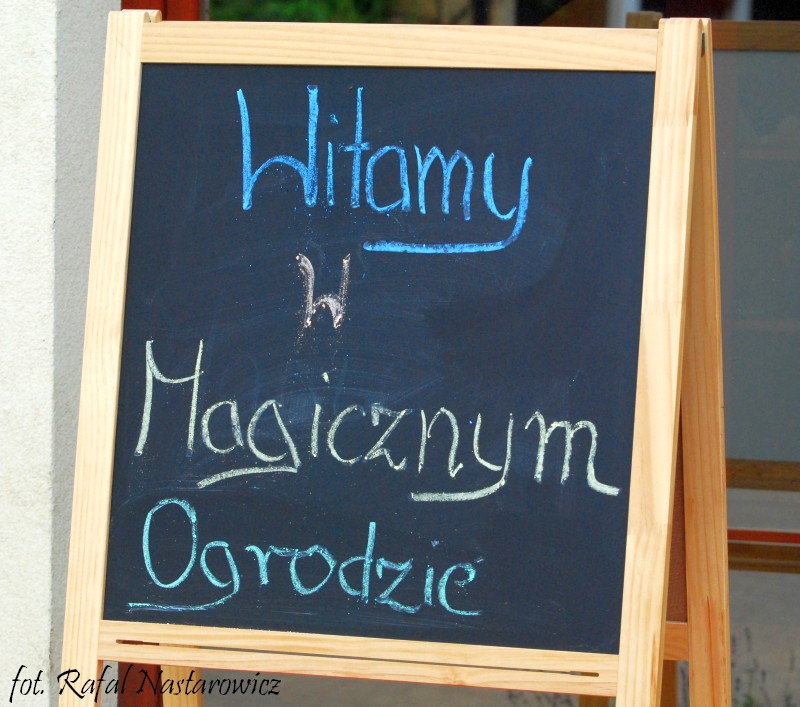 Witamy
w
Magicznym
Ogrodzie
fot. Rafał Nastarowicz